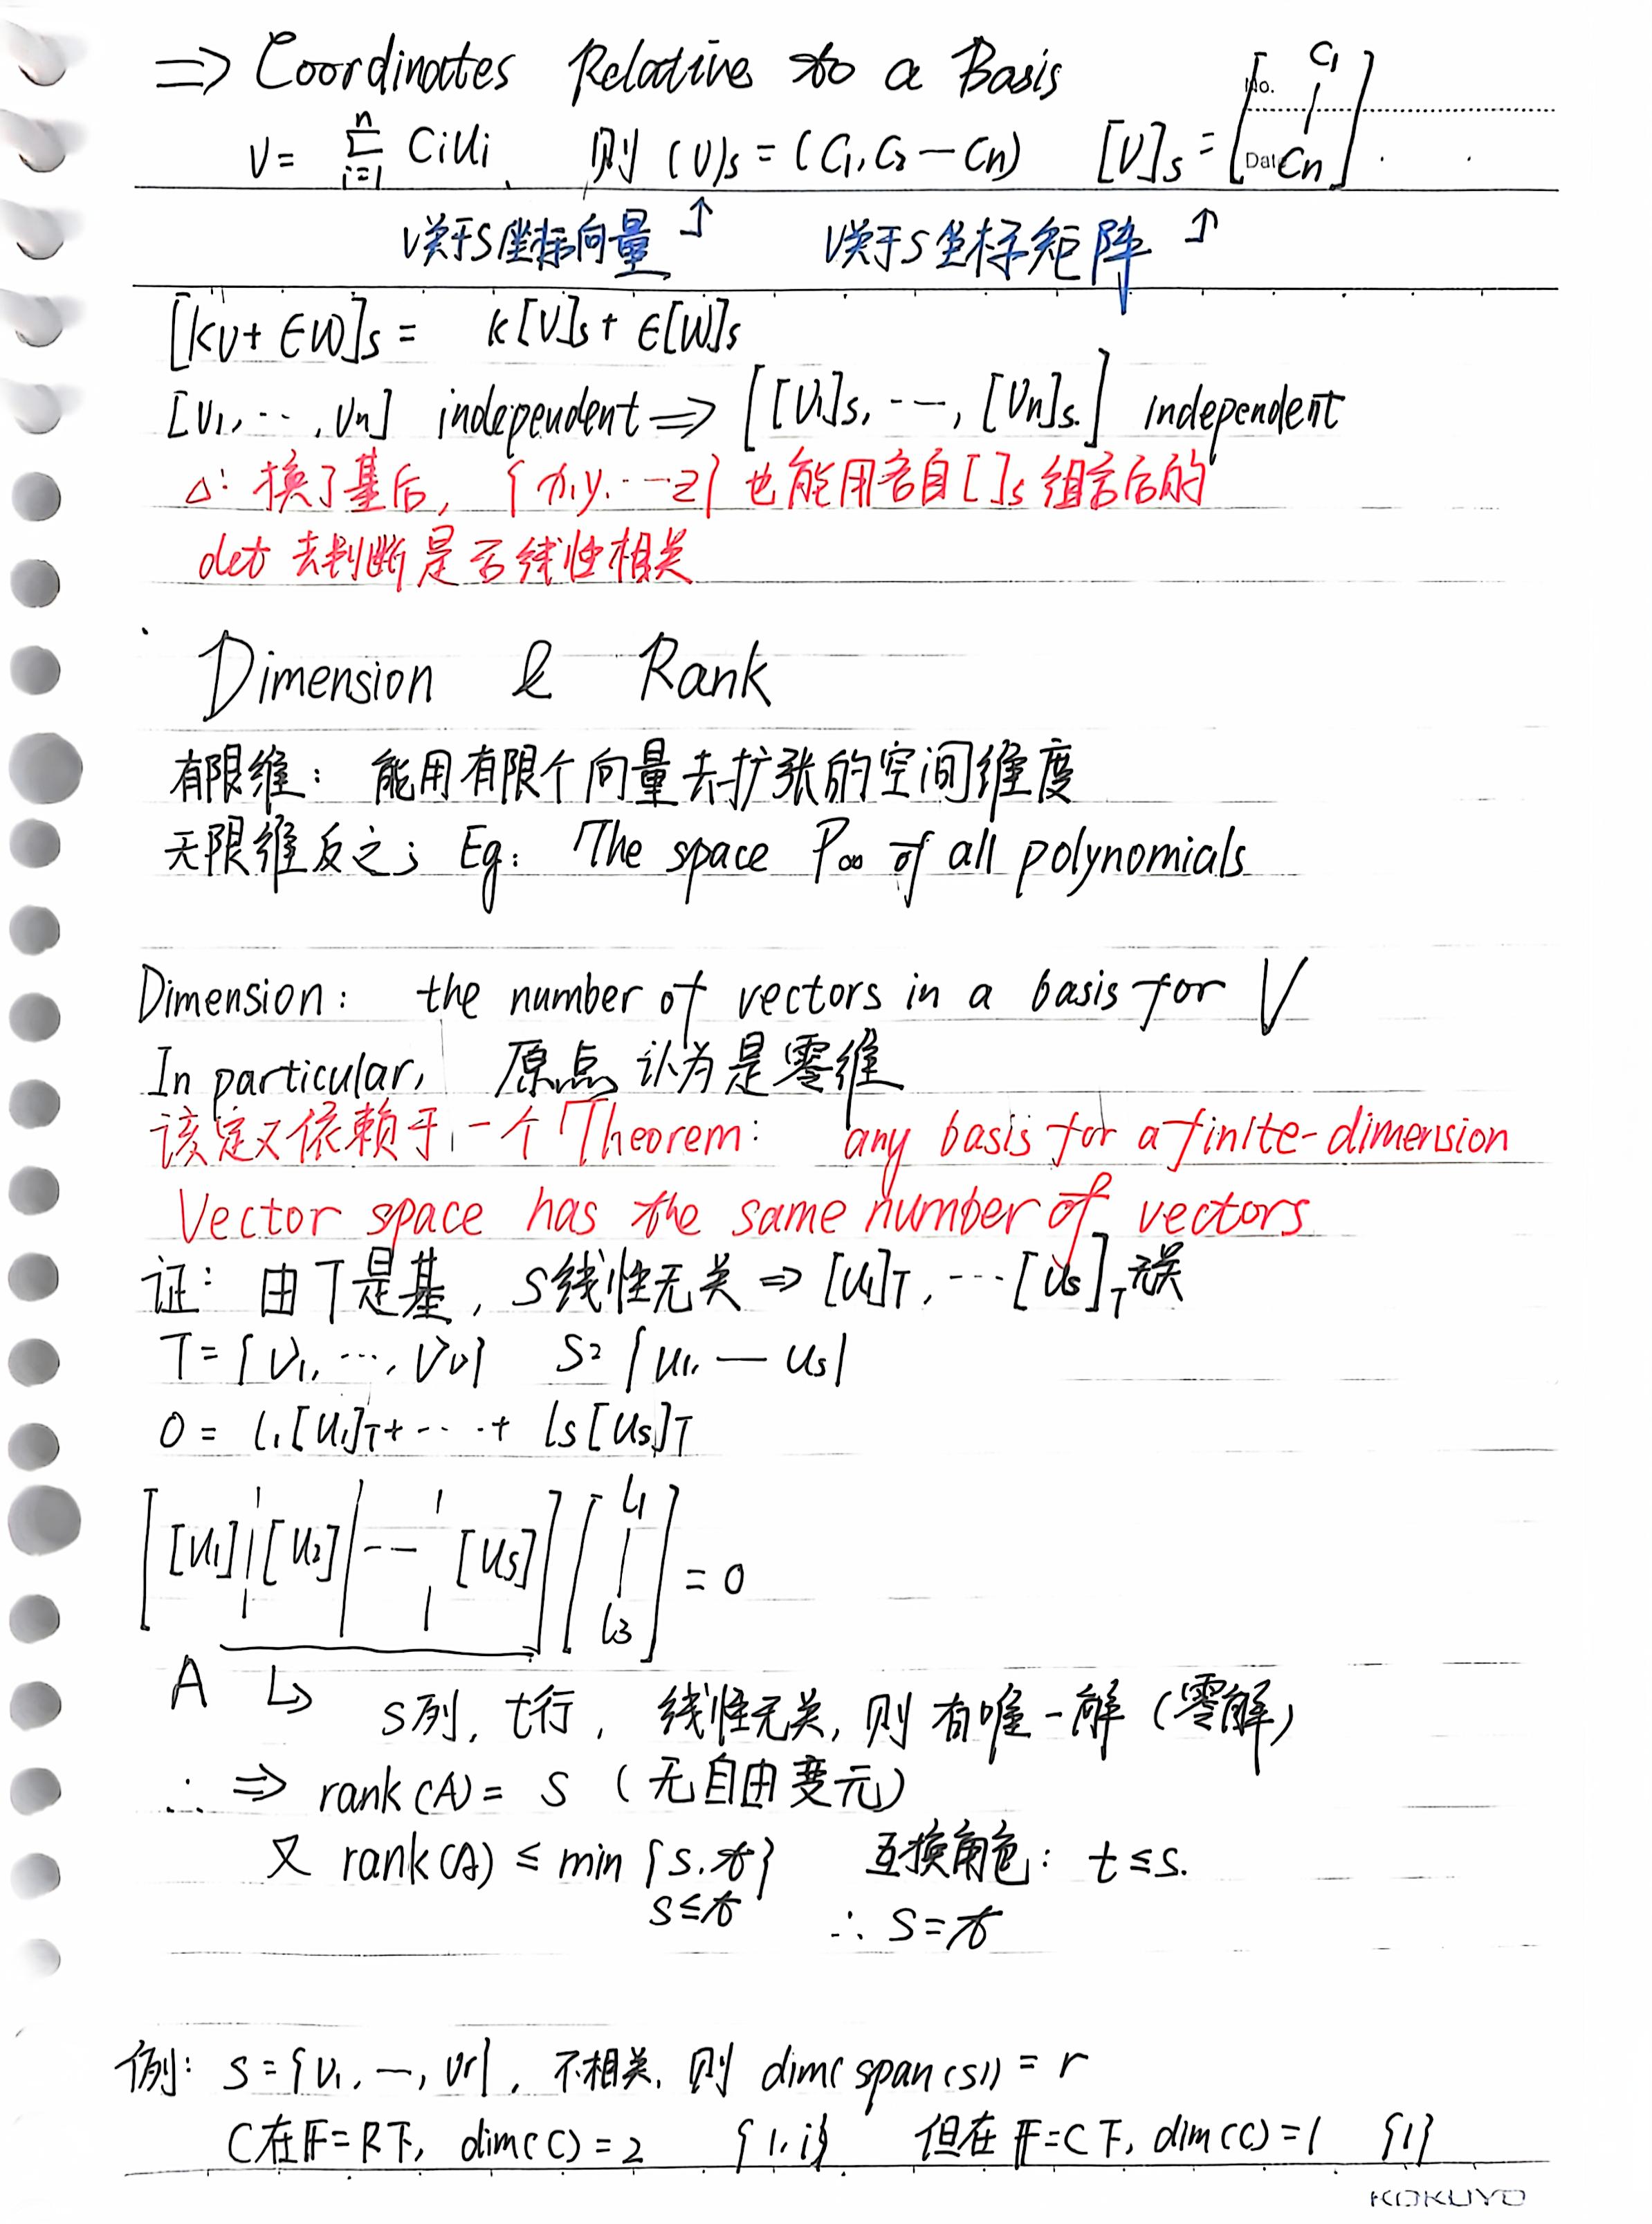 ⇒ Coordinates Relative to a Basis
No.
Date
V = ∑_{i=1}^{n} CiUi, 则 (V)s = (C1, C2 — Cn) [V]s = [C1 | Cn].
V关于S坐标向量↑ V关于S坐标矩阵↑
[kv + ∈W]s = k[V]s + ∈[W]s
[V1, ..., Vn] independent ⇒ [[V1]s, ---, [Vn]s.] independent
△: 换了基后, {x,y,...z}也能用各自[]s组合后的
det 去判断是否线性相关
Dimension & Rank
有限维: 能用有限个向量去扩张的空间维度
无限维反之; Eg: The space P∞ of all polynomials
Dimension: the number of vectors in a basis for V
In particular, 原点认为是零维
该定义依赖于一个Theorem: any basis for a finite-dimension
Vector space has the same number of vectors
证: 由T是基, S线性无关 ⇒ [U1]T, ...[Us]T 无关
T = {V1, ..., Vt} S = {U1, — Us}
0 = l1[U1]T + ... + ls[Us]T
[[U1] | [U2] | --- | [Us]] [l1 | l3] = 0
A ↳ S列, t行, 线性无关, 则有唯一解 (零解)
∴ ⇒ rank(A) = S (无自由变元)
又 rank(A) ≤ min {s, t} 互换角色: t ≤ s.
s ≤ t ∴ S = t
例: S = {V1, —, Vr}, 不相关, 则 dim(span(S)) = r
C在𝔽=R下, dim(C) = 2 {1, i} 但在𝔽=C下, dim(C) = 1 {1}
KOKUYO